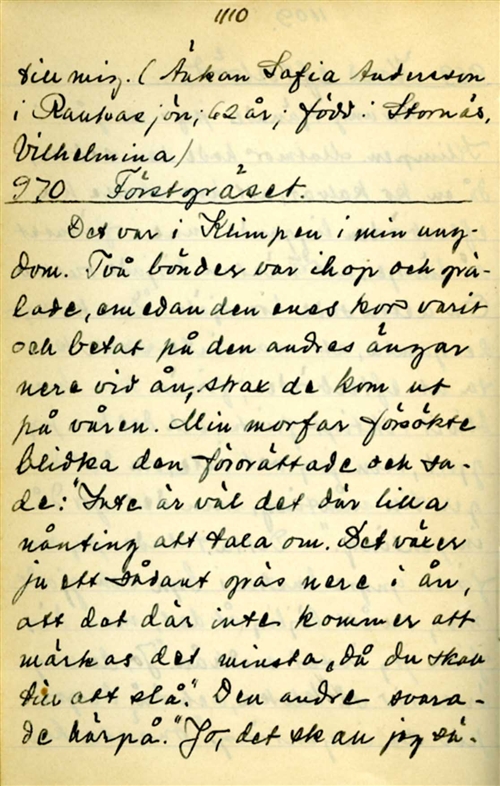 1110
till mig. (Änkan Sofia Andersson
i Rautvasjön; 62 år; född i Stornäs,
Vilhelmina)
970 Förstgräset.
Det var i Klimpen i min ung-
dom. Två bönder var ihop och grä-
lade, emedan den enes kor varit
och betat på den andres ängar
nere vid ån, strax de kom ut
på våren. Min morfar försökte
blidka den förorättade och sa-
de: "Inte är väl det där lilla
nånting att tala om. Det växer
ju ett sådant gräs nere i ån,
att det där inte kommer att
märkas det minsta, då du skall
till att slå." Den andre svara-
de härpå. "Jo, det skall jag sä-